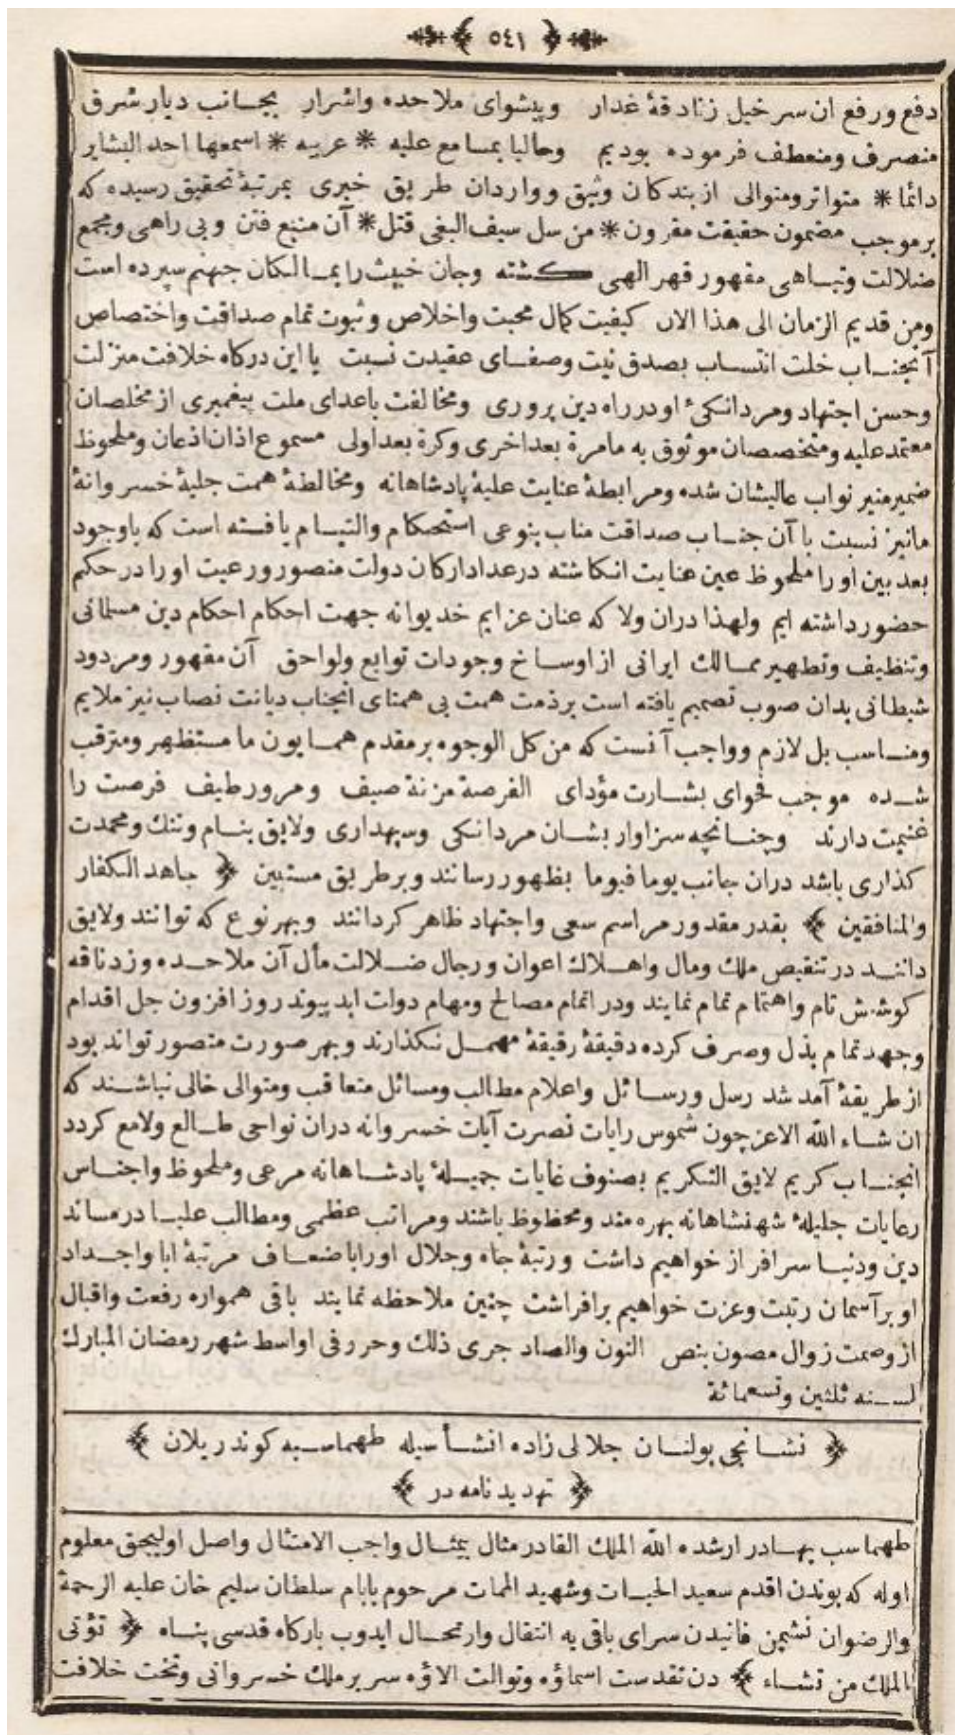 ﴿ ٥٤١ ﴾
دفع ورفع ان سر خيل زنادقهٔ غدار وپيشواى ملاحده واشرار بجانب ديار شرق
منصرف ومنعطف فرموده بوديم وحاليا بمسامع عليه * عربيه * اسمعها احد البشاير
دائما * متواتر ومتوالى از بندكان وثيق وواردان طريق خبرى بمرتبهٔ تحقيق رسيده كه
بر موجب مضمون حقيقت مقرون * من سل سيف البغى قتل * آن منبع فتن وبى راهى ومجمع
ضلالت وتباهى مقهور قهر الهى كشته وجان خبيث را بمالكان جهنم سپرده است
ومن قديم الزمان الى هذا الان كيفيت كمال محبت واخلاص وثبوت تمام صداقت واختصاص
آنجناب خلت انتساب بصدق نيت وصفاى عقيدت نسبت يا اين دركاه خلافت منزلت
وحسن اجتهاد ومردانكىٔ او در راه دين پرورى ومخالفت باعداى ملت پيغمبرى از مخلصان
معتمد عليه ومتخصصان موثوق به مامرة بعد اخرى وكرة بعد اولى مسموع اذان اذعان وملحوظ
ضمير منير نواب عاليشان شده ومرابطهٔ عنايت عليهٔ پادشاهانه ومخالطهٔ همت جليهٔ خسروانهٔ
مانيز نسبت با آن جناب صداقت مناب بنوعى استحكام والتيام يافته است كه باوجود
بعد بين او را ملحوظ عين عنايت انكاشته در عداد اركان دولت منصور ورعيت او را در حكم
حضور داشته ايم ولهذا دران ولا كه عنان عزايم خديوانه جهت احكام احكام دين مسلمانى
وتنظيف وتطهير ممالك ايرانى از اوساخ وجودات توابع ولواحق آن مقهور ومردود
شيطانى بدان صوب تصميم يافته است بر ذمت همت بى همتاى انجناب ديانت نصاب نيز ملايم
ومناسب بل لازم وواجب آنست كه من كل الوجوه بر مقدم همايون ما مستظهر ومترقب
شده موجب فحواى بشارت مؤداى الفرصة مزنة صيف ومرور طيف فرصت را
غنيمت دارند وچنانچه سزاوار بشان مردانكى وسپهدارى ولايق بنام وننك ومحمدت
كذارى باشد دران جانب يوما فيوما بظهور رسانند وبر طريق مستبين ﴿ جاهد الكفار
والمنافقين ﴾ بقدر مقدور مراسم سعى واجتهاد ظاهر كردانند وبهر نوع كه توانند ولايق
دانند در تنقيص ملك ومال واهلاك اعوان ورجال ضلالت مأل آن ملاحده وزدناقه
كوشش تام واهتمام تمام نمايند ودر اتمام مصالح ومهام دولت ابد پيوند روز افزون جل اقدام
وجهد تمام بذل وصرف كرده دقيقهٔ رقيقهٔ مهمل نكذارند وبهر صورت متصور تواند بود
از طريقهٔ آمد شد رسل ورسائل واعلام مطالب ومسائل متعاقب ومتوالى خالى نباشند كه
ان شاء الله الاعز چون شموس رايات نصرت آيات خسروانه دران نواحى طالع ولامع كردد
انجناب كريم لايق التكريم بصنوف غايات جميلهٔ پادشاهانه مرعى وملحوظ واجناس
رعايات جليلهٔ شهنشاهانه بهره مند ومحظوظ باشند ومراتب عظمى ومطالب عليا در مساند
دين ودنيا سرافراز خواهيم داشت ورتبهٔ جاه وجلال او را باضعاف مرتبهٔ ابا واجداد
او بر آسمان رتبت وعزت خواهيم برافراشت چنين ملاحظه نمايند باقى همواره رفعت واقبال
از وصمت زوال مصون بنص النون والصاد جرى ذلك وحرر فى اواسط شهر رمضان المبارك
لسنه ثلثين وتسعمائة
﴿ نشانجى بولنان جلالى زاده انشأسيله طهماسبه كوندريلان ﴾
﴿ تهديدنامه در ﴾
طهماسب بهادر ارشده الله الملك القادر مثال بيمثال واجب الامتثال واصل اوليجق معلوم
اوله كه بوندن اقدم سعيد الحيات وشهيد الممات مرحوم بابام سلطان سليم خان عليه الرحمة
والرضوان نشيمن فانيدن سراى باقى يه انتقال وارتحال ايدوب باركاه قدسى پناه ﴿ تؤتى
الملك من تشاء ﴾ دن تقدست اسماؤه وتوالت الاؤه سرير ملك خسروانى وتخت خلافت